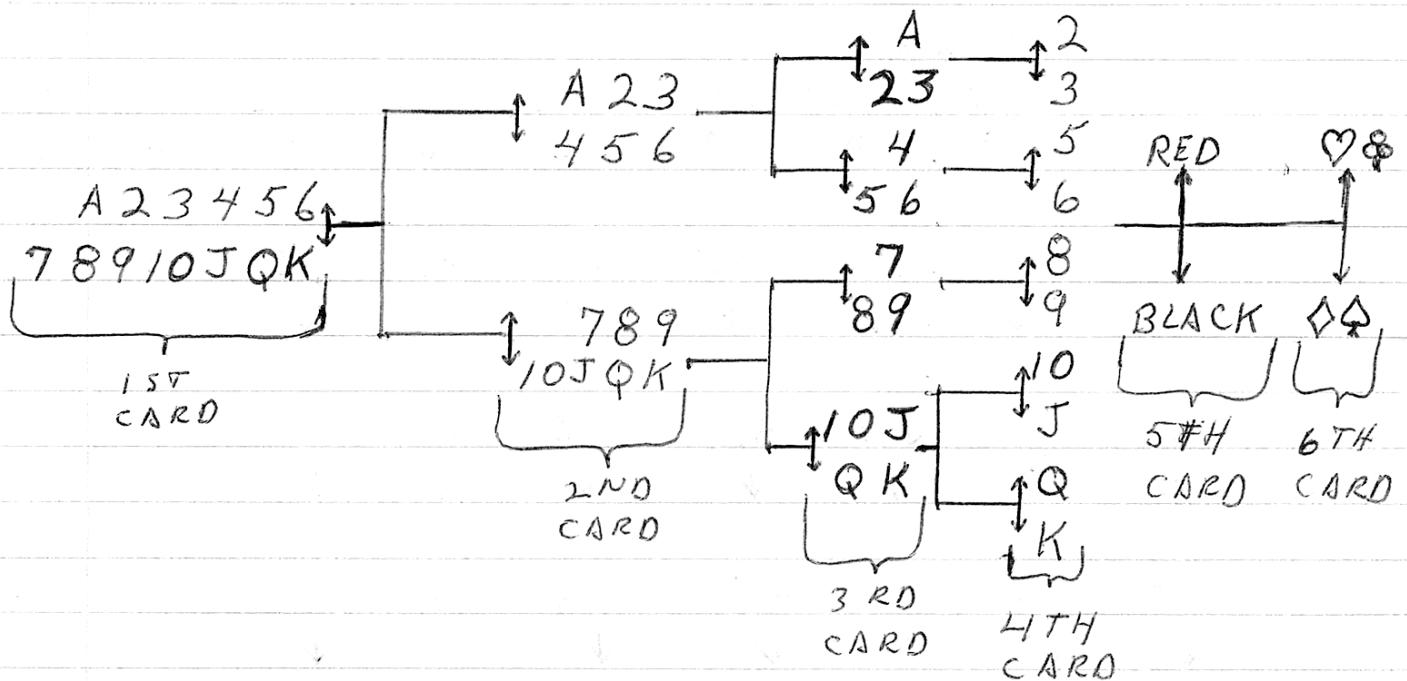 A 2 3 4 5 6
7 8 9 10 J Q K
1 ST
CARD
A 2 3
4 5 6
7 8 9
10 J Q K
2 ND
CARD
A
2 3
4
5 6
7
8 9
10 J
Q K
3 RD
CARD
2
3
5
6
8
9
10
J
Q
K
4 TH
CARD
RED
BLACK
5 TH
CARD
♡♣
♢♠
6 TH
CARD